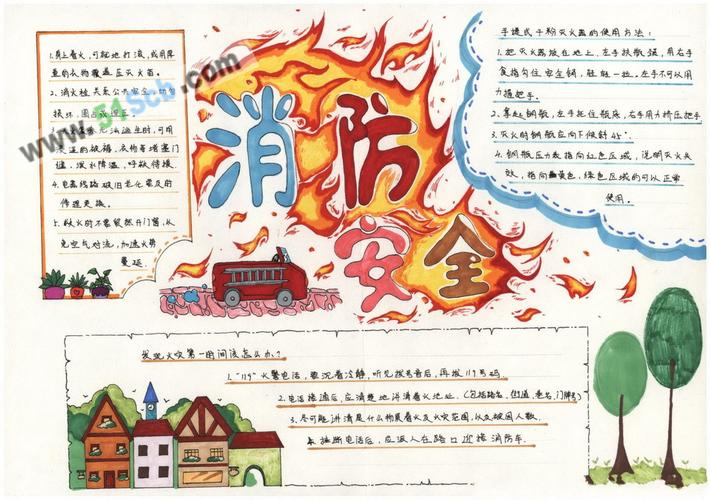 消防
安全
1.身上着火,可就地打滚,或用厚
重的衣物覆盖压灭火苗。
2.消火栓关系公共安全,切勿
损坏、圈占或埋压。
无法逃生时,可用
浸湿的被褥、衣物等堵塞门
缝,泼水降温,呼救待援。
4.电器线路破旧老化要及时
修理更换。
5.救火时不要贸然开门窗,以
免空气对流,加速火势
蔓延。
www.51scb.com
手提式干粉灭火器的使用方法:
1.把灭火器放在地上,左手扶瓶颈,用右手
食指勾住安全销,轻轻一拉,左手不可以用
力捏把手。
2.拿起钢瓶,左手托住瓶底,右手用力挤压把手
3.灭火时钢瓶应向下倾斜45°.
4.钢瓶压力表指向红色区域,说明灭火失
效,指向黄色,绿色区域的可以正常
使用.
发现火灾第一时间该怎么办?
1."119"火警电话,要沉着冷静,听见拨号音后,再拨119号码.
2.电话接通后,应清楚地讲清着火地址.(包括路名、街道、巷名、门牌号)
3.尽可能讲清是什么物质着火及火灾范围,以及被困人数.
4.挂断电话后,应派人在路口迎接消防车.